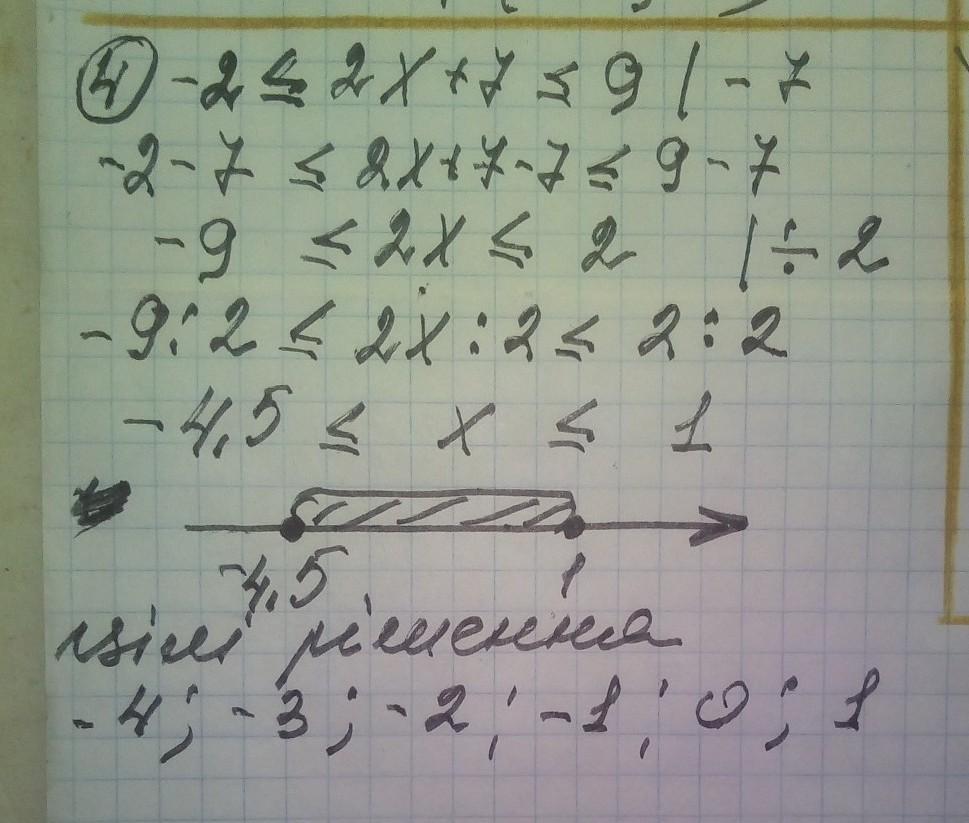 ④ -2 ≤ 2x+7 ≤ 9 | -7
-2-7 ≤ 2x+7-7 ≤ 9-7
-9 ≤ 2x ≤ 2 | ÷ 2
-9:2 ≤ 2x:2 ≤ 2:2
-4,5 ≤ x ≤ 1
-4,5 1
цілі рішення
-4; -3; -2; -1; 0; 1